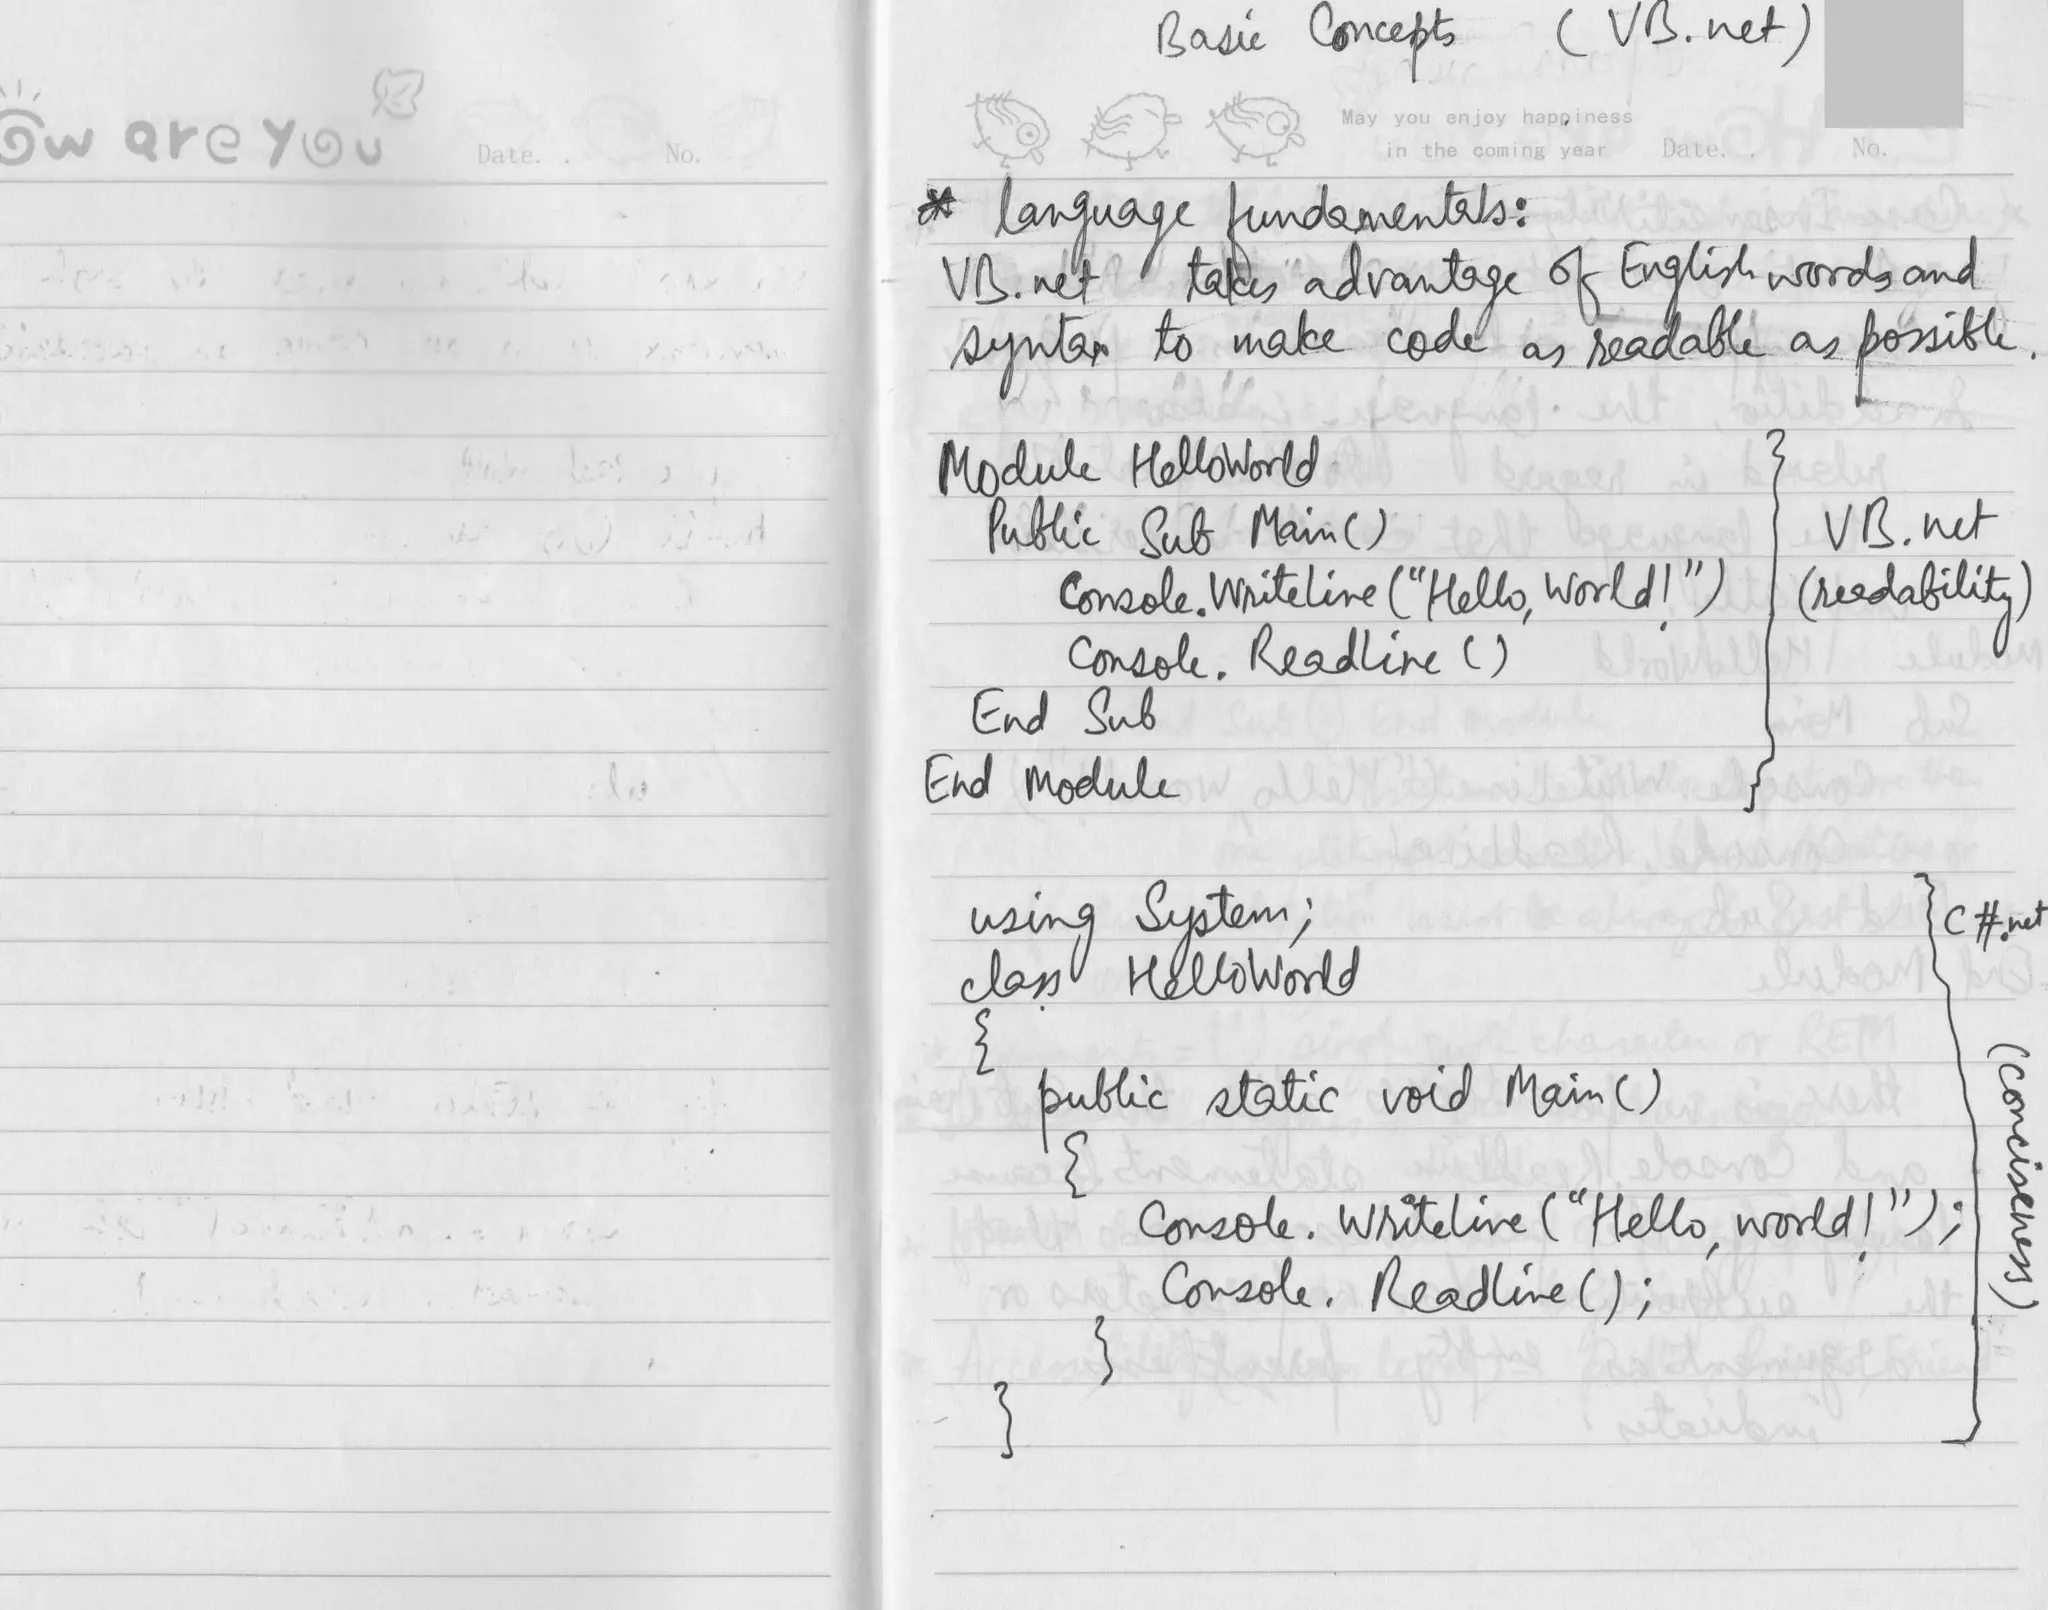 ow are you
Date. . No.
Basic Concepts (VB.net)
May you enjoy happiness
in the coming year Date. . No.
* language fundamentals:
VB.net takes advantage of English words and
syntax to make code as readable as possible.
Module HelloWorld
Public Sub Main()
Console.WriteLine("Hello, World!")
Console.ReadLine()
End Sub
End Module
VB.net
(readability)
using System;
class HelloWorld
{
public static void Main()
{
Console.WriteLine("Hello, world!");
Console.ReadLine();
}
}
C#.net
(conciseness)